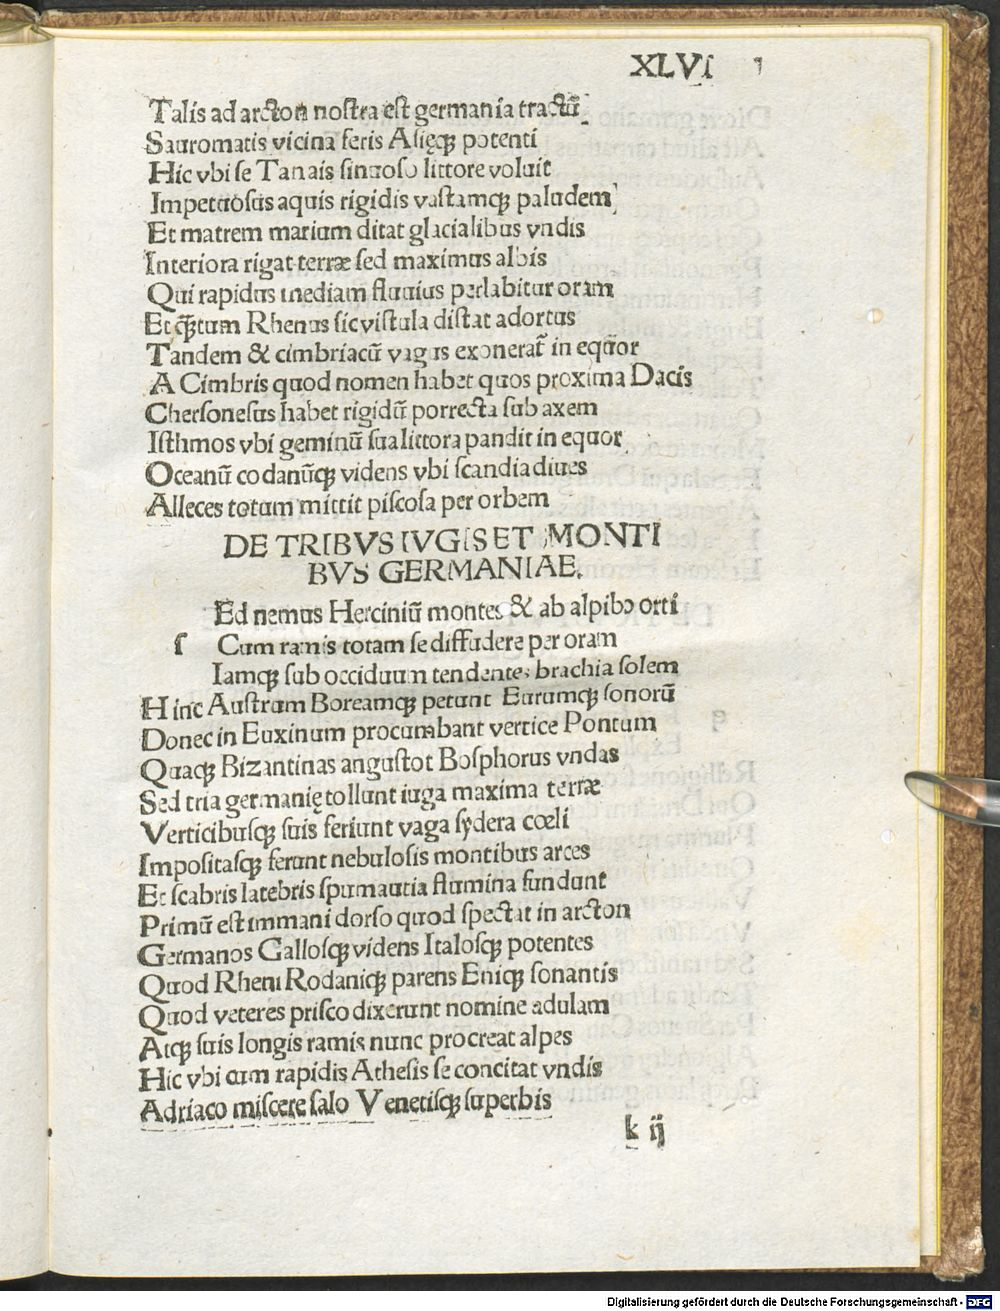 XLVI
Talis ad arcton nostra est germania tractū
Sauromatis vicina feris Asięq̢ potenti
Hic vbi se Tanais sinuoso littore voluit
Impetuosus aquis rigidis vastamq̢ paludem
Et matrem marium ditat glacialibus vndis
Interiora rigat terræ sed maximus albis
Qui rapidus mediam fluuius perlabitur oram
Et q̄tum Rhenus sic vistula distat ad ortus
Tandem & cimbriacū vagus exonerat̄ in equor
A Cimbris quod nomen habet quos proxima Dacis
Chersonesus habet rigidū porrecta sub axem
Isthmos vbi geminū sua littora pandit in equor
Oceanū codanūq̢ videns vbi scandia diues
Alleces totum mittit piscosa per orbem
DE TRIBVS IVGIS ET MONTI
BVS GERMANIAE.
Ed nemus Herciniū montes & ab alpibꝰ orti
s Cum ramis totam se diffudere per oram
Iamq̢ sub occiduum tendentes brachia solem
Hinc Austrum Boreamq̢ petunt Eurumq̢ sonorū
Donec in Euxinum procumbant vertice Pontum
Quaq̢ Bizantinas angustot Bosphorus vndas
Sed tria germanię tollunt iuga maxima terræ
Verticibusq̢ suis feriunt vaga sydera cœli
Impositasq̢ ferunt nebulosis montibus arces
Et scabris latebris spumautia flumina fundunt
Primū est immani dorso quod spectat in arcton
Germanos Gallosq̢ videns Italosq̢ potentes
Quod Rheni Rodaniq̢ parens Eniq̢ sonantis
Quod veteres prisco dixerunt nomine adulam
Atq̢ suis longis ramis nunc procreat alpes
Hic vbi cum rapidis Athesis se concitat vndis
Adriaco miscere salo Venetisq̢ superbis
k ij
Digitalisierung gefördert durch die Deutsche Forschungsgemeinschaft - DFG